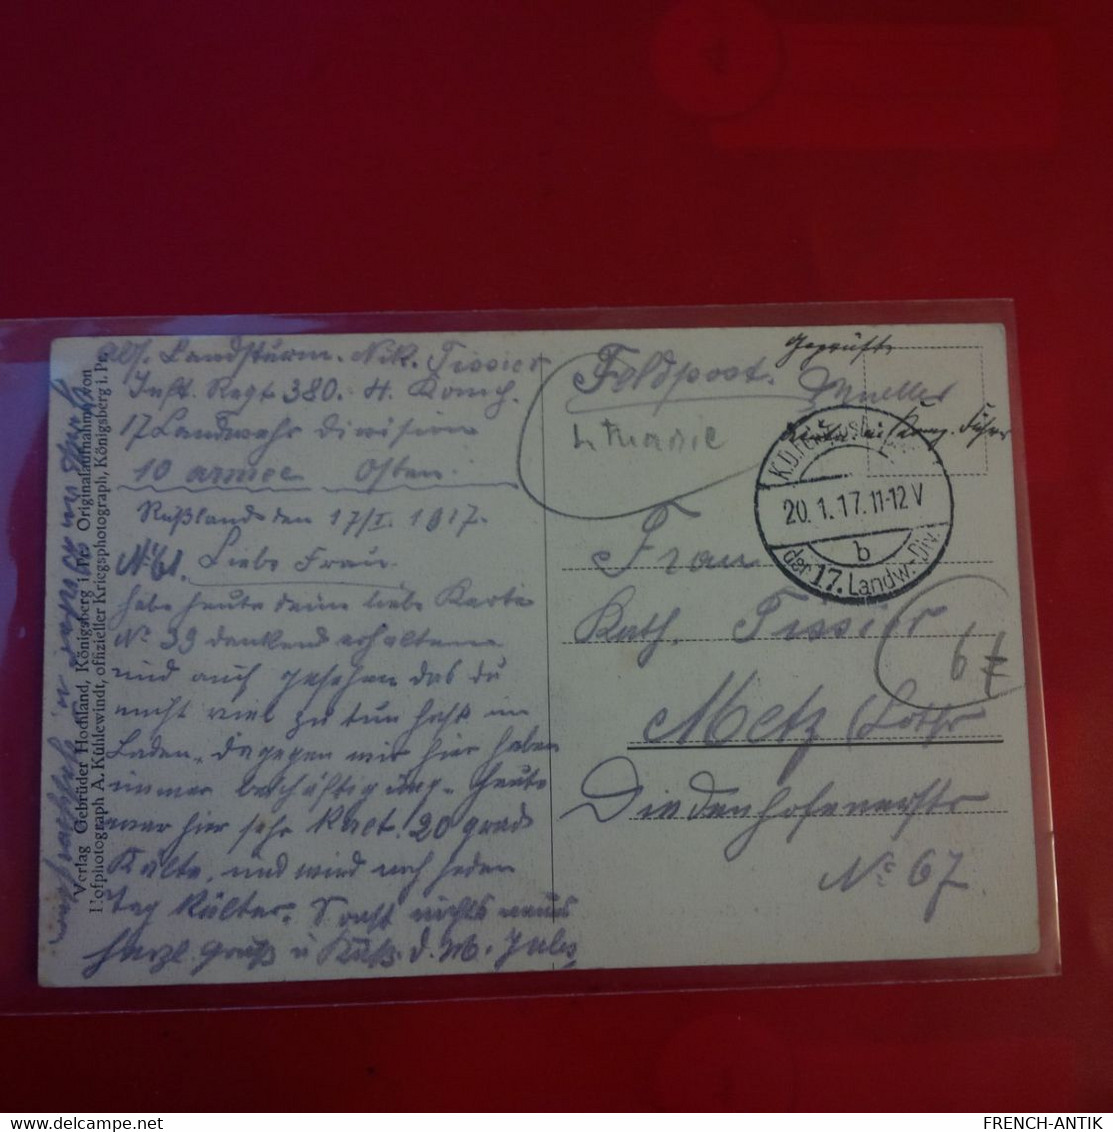 Abs. Landsturm. Nik. Tissier
Inft. Regt 380. 4. Komp.
17 Landwehr Division
10 armee Osten.
Rußland den 17/I. 1917.
No 61. Liebe Frau.
habe heute deine liebe Karte
No 39 dankend erhalten
und auch gesehen das du
nicht viel zu tun hast im
Laden. dagegen wir hier haben
immer beschäftigung. heute
war hier sehr kalt. 20 grad
Kälte, und wird noch jeden
Tag kälter. Sonst nichts neues
herzl. Gruß u Kuß. d. M. Jules
Verlag Gebrüder Hochland, Königsberg i. Pr. Originalaufnahme von
Hofphotograph A. Kühlewindt, offizieller Kriegsphotograph, Königsberg i. Pr.
Feldpost.
Lithuanie
Geprüft
Mueller
Komp. Führer
20. 1. 17. 11-12 V
b
der 17. Landw.-Div.
Frau
Kath. Tissier
Metz (Lothr
Diedenhofenerstr
No 67.
6 €
FRENCH-ANTIK
delcampe.net